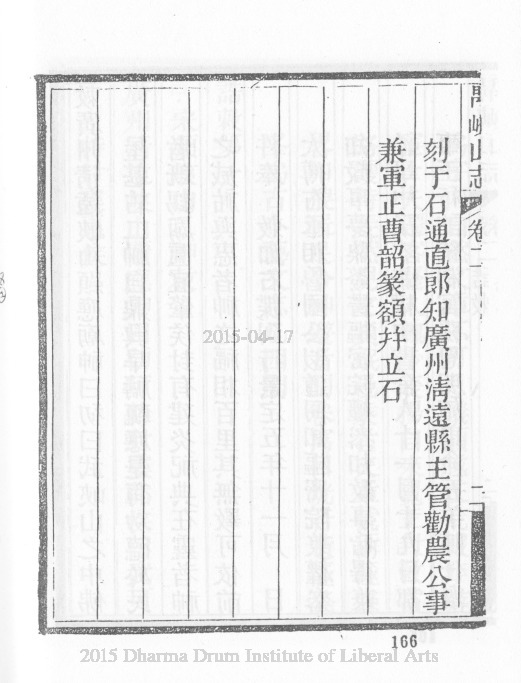 峽山志
卷二
刻于石通直郎知廣州淸遠縣主管勸農公事
兼軍正曹韶篆額幷立石
2015-04-17
166
2015 Dharma Drum Institute of Liberal Arts